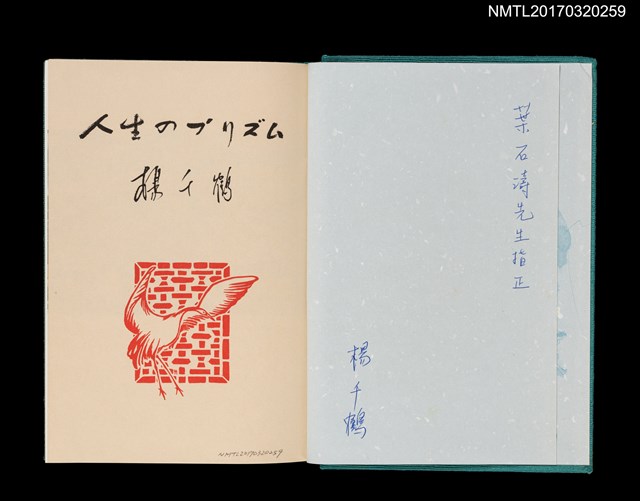 NMTL20170320259
人生のプリズム
楊千鶴
NMTL20170320259
葉石涛先生指正
楊千鶴